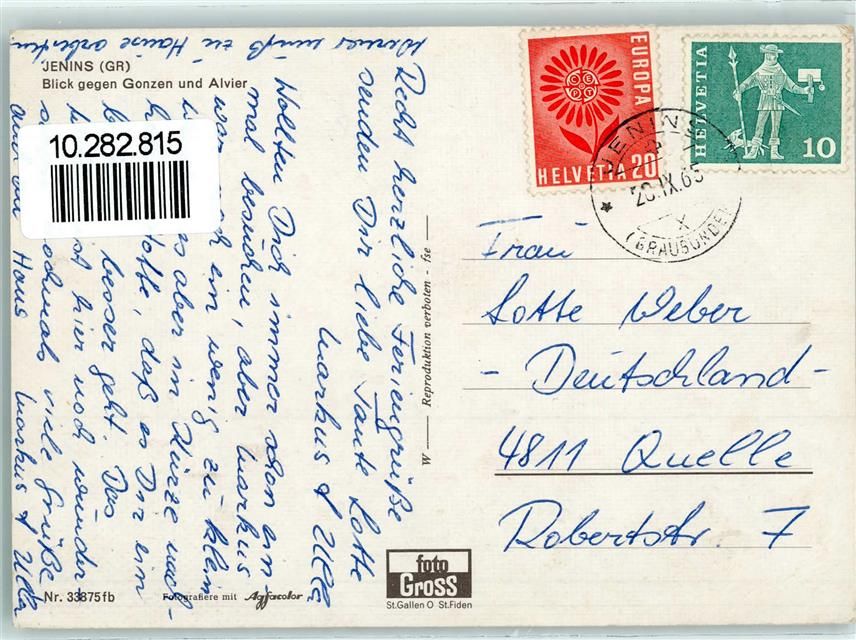 JENINS (GR)
Blick gegen Gonzen und Alvier
10.282.815
Recht herzliche Feriengrüße
senden Dir liebe Tante Lotte
Markus & Ulla
Wollten Dich immer schon ein
mal besuchen, aber Markus
war noch ein wenig zu klein
es aber in Kürze nach-
hoffe, daß es Dir ein
besser geht. Das
ist hier noch wunder
nochmals viele Grüße
Haus Markus & Ulla
Werner muß zu Hause arbeiten
W — Reproduktion verboten - fse —
EUROPA
CEPT
HELVETIA 20
HELVETIA
10
JENINS
20.IX.65
(GRAUBÜNDEN)
Frau
Lotte Weber
- Deutschland -
4811 Quelle
Robertstr. 7
Nr. 33875fb
Fotografiere mit Agfacolor
foto
Gross
St.Gallen O St.Fiden